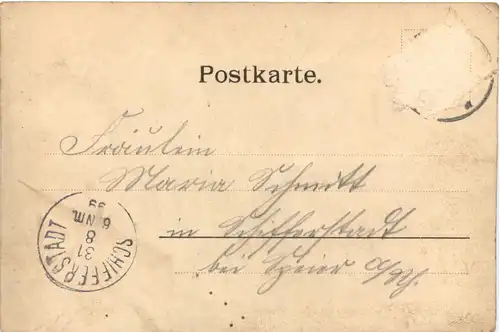 Postkarte.
Fräulein
Maria Schmitt
in Schifferstadt
bei Speier a/Rh.
SCHIFFERSTADT
31
8
6. NM.
99